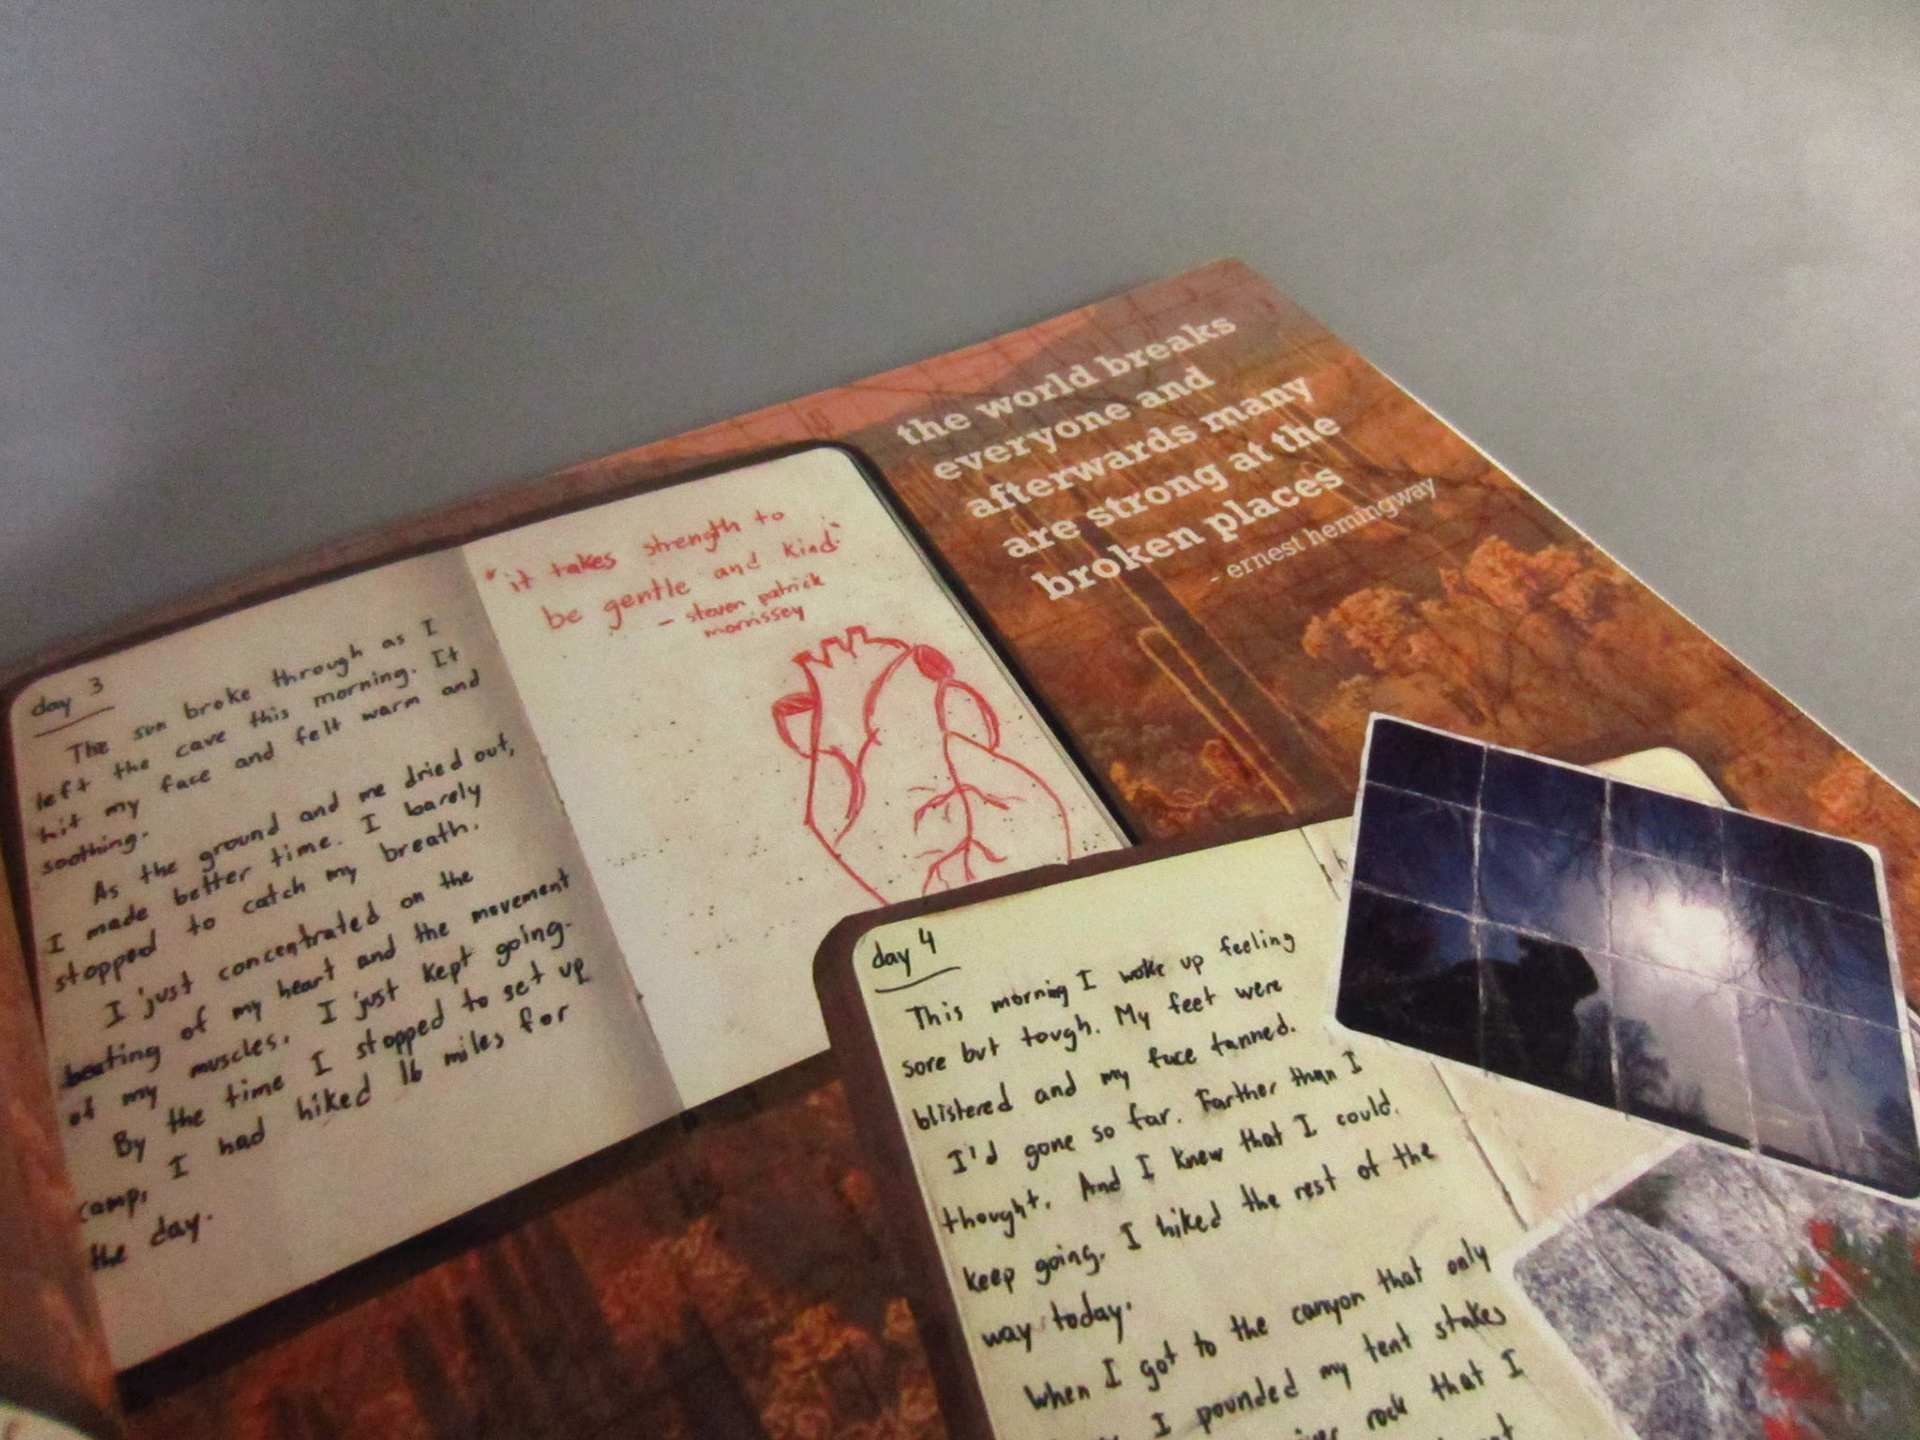 the world breaks
everyone and
afterwards many
are strong at the
broken places
- ernest hemingway
"it takes strength to
be gentle and kind"
- steven patrick
morrissey
day 3
The sun broke through as I
left the cave this morning. It
hit my face and felt warm and
soothing.
As the ground and me dried out,
I made better time. I barely
stopped to catch my breath.
I just concentrated on the
beating of my heart and the movement
of my muscles. I just kept going.
By the time I stopped to set up
camp, I had hiked 16 miles for
the day.
day 4
This morning I woke up feeling
sore but tough. My feet were
blistered and my face tanned.
I'd gone so far. Farther than I
thought. And I knew that I could
keep going. I hiked the rest of the
way today.
When I got to the canyon that only
I pounded my tent stakes
river rock that I